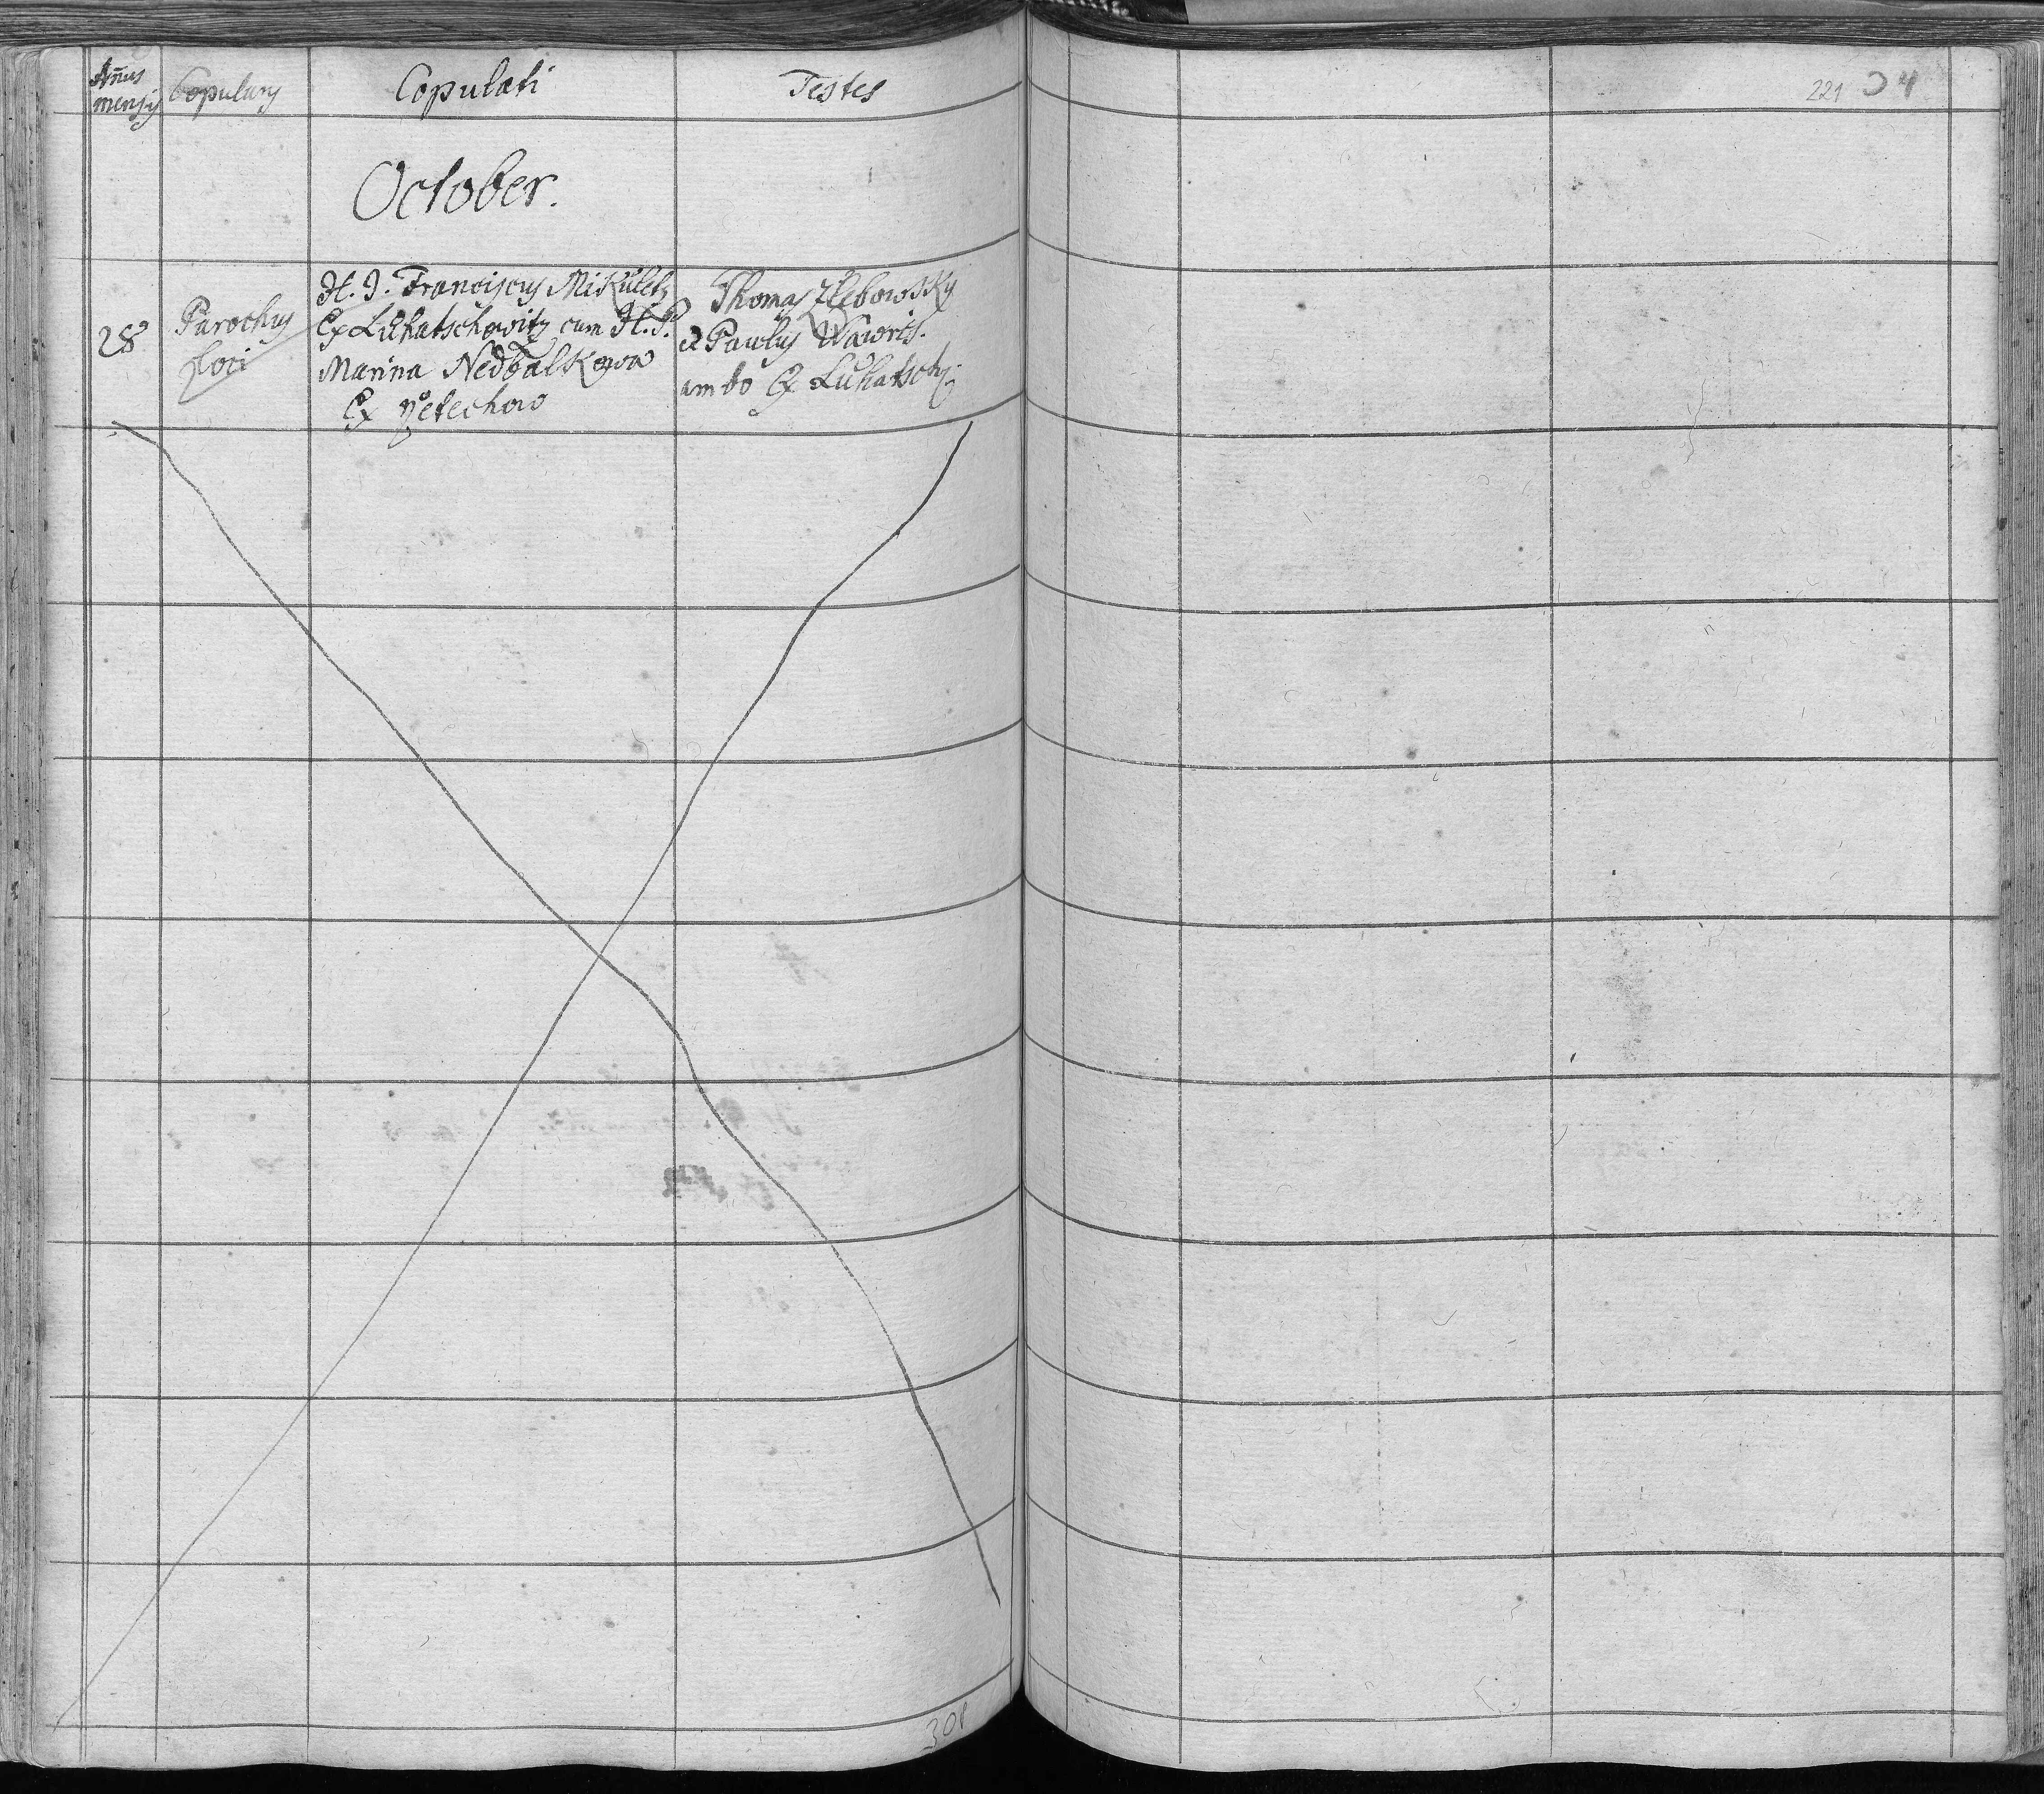 Añus
mensis
Copulans
Copulati
Testes
221 34
October.
28
Parochus
Loci
H. J. Franciscus Mikuletz
Ex Luhatschowitz cum H. P.
Marina Nedbalkowa
Ex Petechow
Thomas Zlebowsky
et Paulus Wawris.
ambo Ex Luhatsch.
308